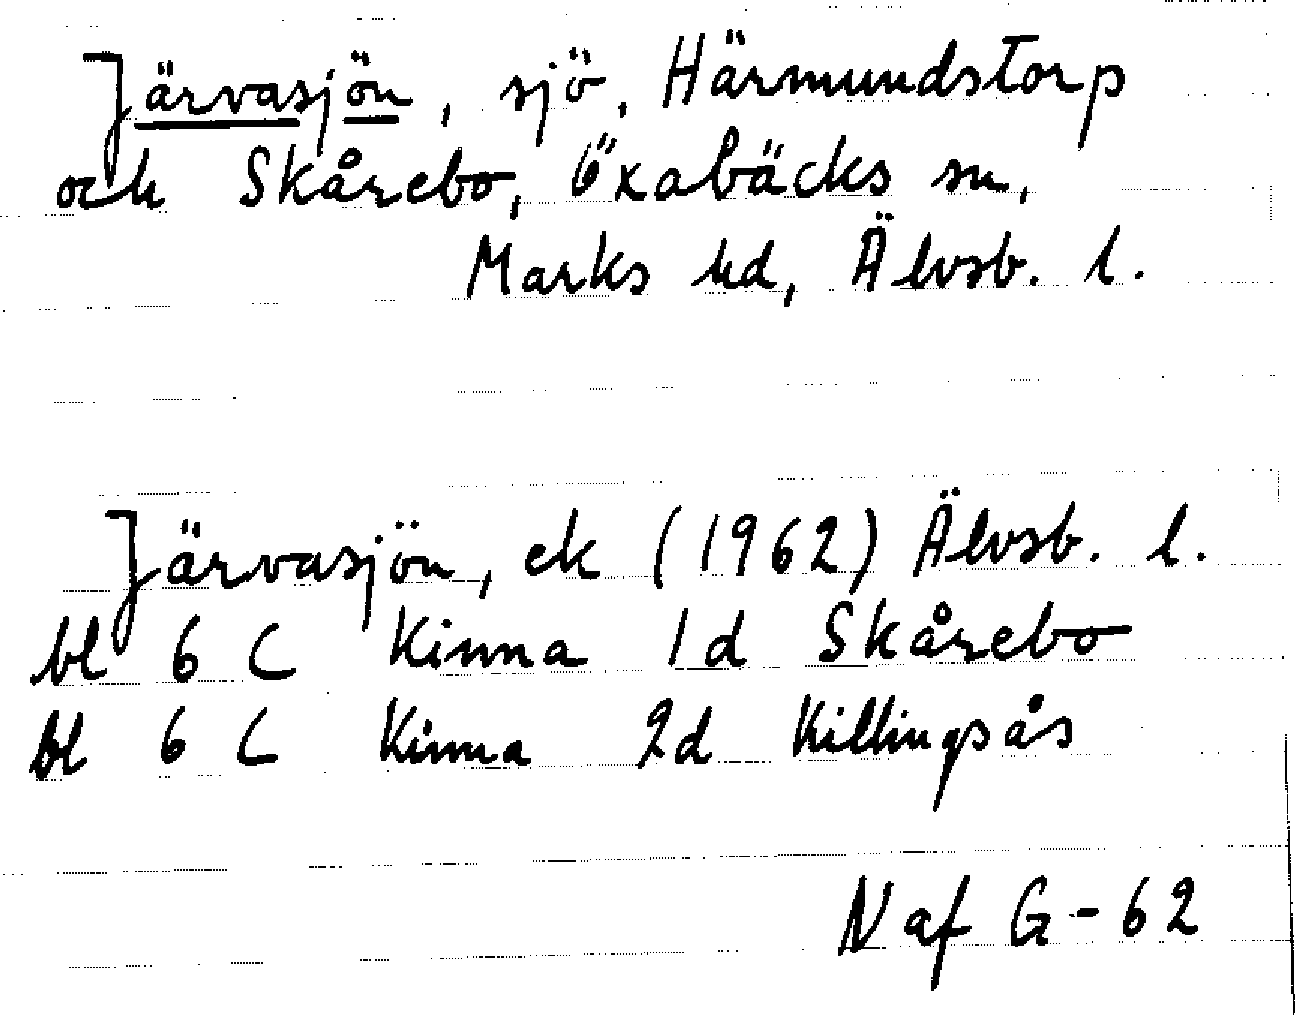 Järvasjön, sjö, Härmundstorp
och Skårebo, Öxabäcks sn,
Marks hd, Älvsb. l.
Järvasjön, ek (1962) Älvsb. l.
bl 6 C Kinna 1d Skårebo
bl 6 C Kinna 2d Killingsås
N af G-62